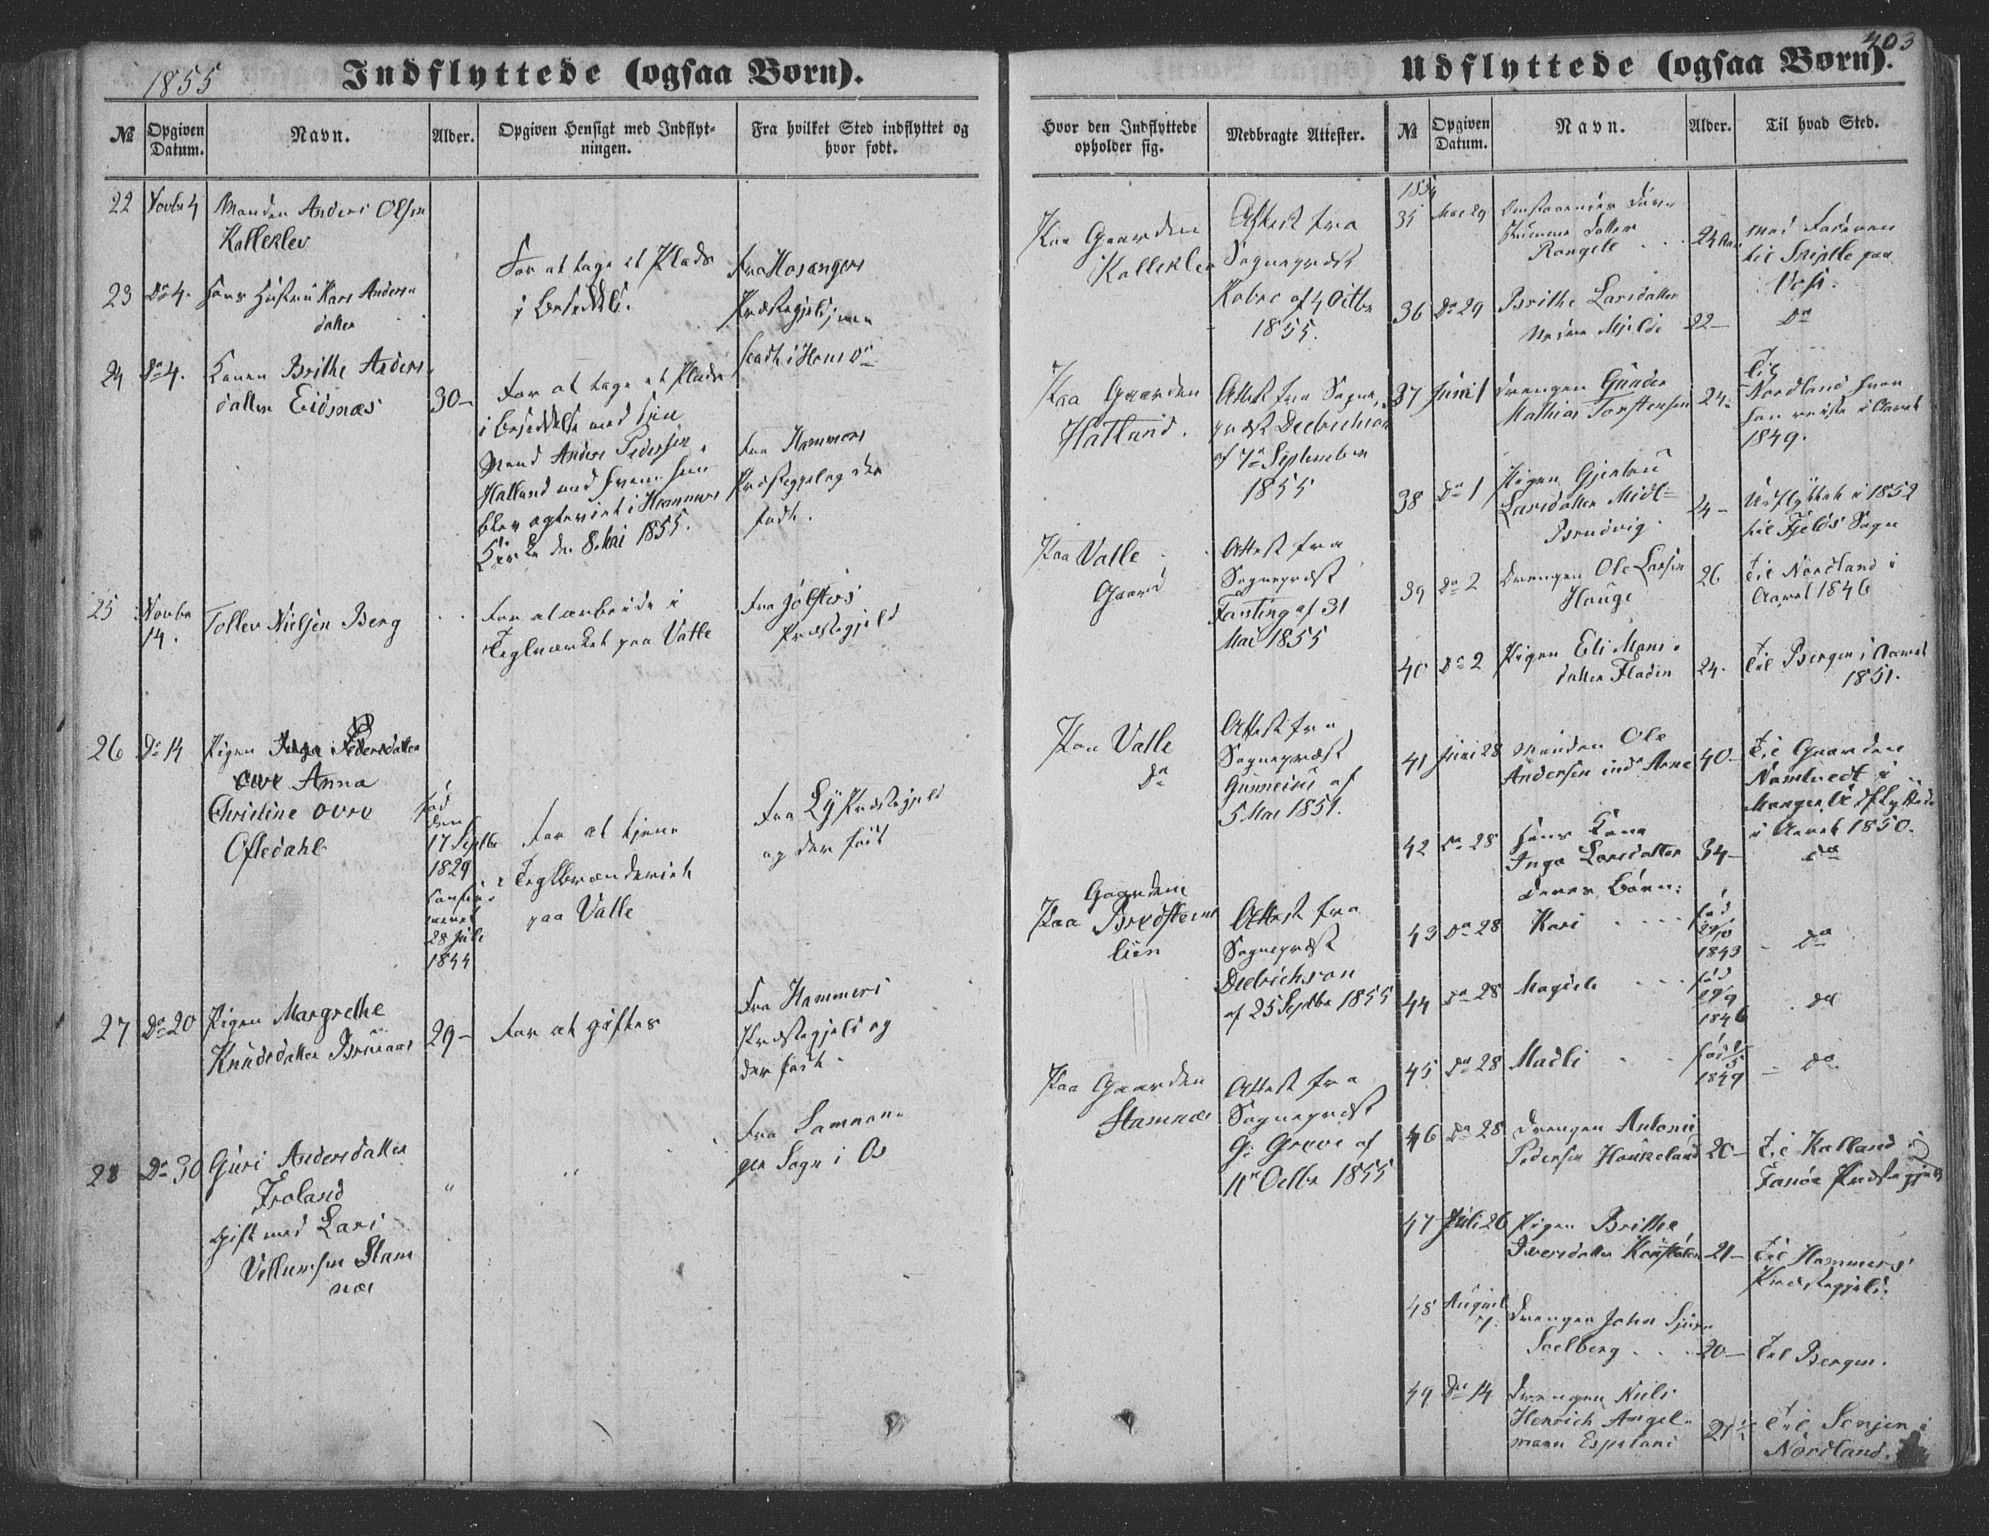 403
1855
Indflyttede (ogsaa Børn).
№
Opgiven Datum.
Navn.
Alder.
Opgiven Hensigt med Indflyt-
ningen.
Fra hvilket Sted indflyttet og
hvor født.
22 Novbr 4 Manden Anders Olsen
Kalleklev
For at tage et Plads
i Besiddelse.
Fra Hosangers
Præstegjeld,
23 Do 4. Hans Hustru Kari Anders
datter
24 Do 4. Konen Brithe Anders
datter Eidsnæs
30-
For at tage et Plads
i Besiddelse med sin
Mand Anders Pedersen
Hatland med hvem hun
blev egteviet i Hammers
Kirke den 8. Mai 1855.
Fra Hammers
Præstegjeld og der
født.
25 Novbr
14.
Tollev Nielsen Berg
For at arbeide i
Teglværket paa Valle
Fra Jølsters
Præstegjeld
26 Do 14 Pigen Pedersdatter
Anna
Christine øvre
Oftedahl
fød
den
17 Septbr
1829
28 Juli
1844
For at tjene
i Teglbrænderiet
paa Valle
Fra Ly Præstegjeld
og der født
27 Do 20 Pigen Margrethe
Knudsdatter Bruaas
29-
For at giftes
Fra Hammers
Præstegjeld og
der født.
28 Do 30 Guri Andersdatter
Froland
Gift med Lars
Villumsen Stam
næs
"
"
Fra Samnan-
ger Sogn i Os
Udflyttede (ogsaa Børn).
Hvor den Indflyttede
opholder sig.
Medbragte Attester.
Paa Gaarden
Kalleklev
Attest fra
Sognepræst
af 4 Octbr
1855.
Paa Gaarden
Hatland.
Attest fra Sogne
præst Dedrichson
af 7de September
1855
Paa Valle
Gaard
Attest fra
Sognepræst
Fasting af 31
Mai 1855
Paa Valle
Do
Attest fra
Sognepræst
af
5 Mai 1851.
Paa Gaarden
Bredsteens
lien
Attest fra
Sognepræst
Dedrichson
af 25 Septbr 1855
Paa Gaarden
Stamnæs
Attest fra
Sognepræst
G. Greve af
11te Octbr 1855
№
Opgiven Datum.
Navn.
Alder.
Til hvad Sted.
35 Mai 29
datter
Rangele
24 Aar
med Faderen
til paa
Voss.
36 Do 29 Brithe Larsdatter
Mjelde
22-
Do
37 Juni 1 Drengen Gunder
Mathias Torstensen
24-
Til
Nordland hvor
han reiste i Aaret
1849.
38 Do 1 Pigen Gjertru
Larsdatter Midt-
Bruvig.
24-
Udflyttet i 1852
til Fjelds Sogn
39 Do 2 Drengen Ole Larsen
Hauge
26
Til Nordland i
Aaret 1846
40 Do 2 Pigen Eli Mons-
datter Fladen
24-
Til Bergen i Aaret
1851.
41 Juni 28 Manden Ole
Andersen indr Arne
40-
Til Gaarden
Namtvedt i
Manger Udflyttede
i Aaret 1850.
42 Do 28 Hans Kone
Inga Larsdatter
34-
Do
deres Børn:
43 Do 28 Kari
fød
1843
Do
44 Do 28 Magda
fød
29/9
1846
Do
45 Do 28 Madli
fød
1849
Do
46 Do 28 Drengen Antoni
Pedersen Haukeland
20-
Til Kalland i
Fanøe Præstegjeld
47 Juli 26 Pigen Brithe
Iversdatter
21-
Til Hammers
Præstegjeld.
48 August
7.
Drengen John
Soelberg
20-
Til Bergen.
49 Do 14 Drengen Niels
Henrich Angel-
mann Espeland
21½
Til Senjen i
Nordland.